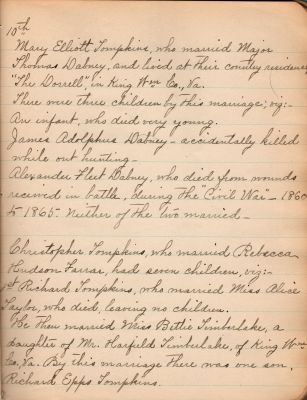 10th
Mary Elliott Tompkins, who married Major
Thomas Dabney, and lived at their country residence
"The Dorrell", in King Wm Co., Va.
There were three children by this marriage; viz:-
An infant, who died very young.
James Adolphus Dabney - accidentally killed
while out hunting -
Alexander Fleet Dabney, who died from wounds
received in battle, during the "Civil War" - 1860
to 1865 - Neither of the two married -
Christopher Tompkins, who married Rebecca
Hudson Farrar, had seven children, viz:-
1st Richard Tompkins, who married Miss Alice
Taylor, who died, leaving no children.
He then married Miss Bettie Timberlake, a
daughter of Mr. Harfield Timberlake, of King Wm
Co., Va. By this marriage there was one son,
Richard Epps Tompkins.